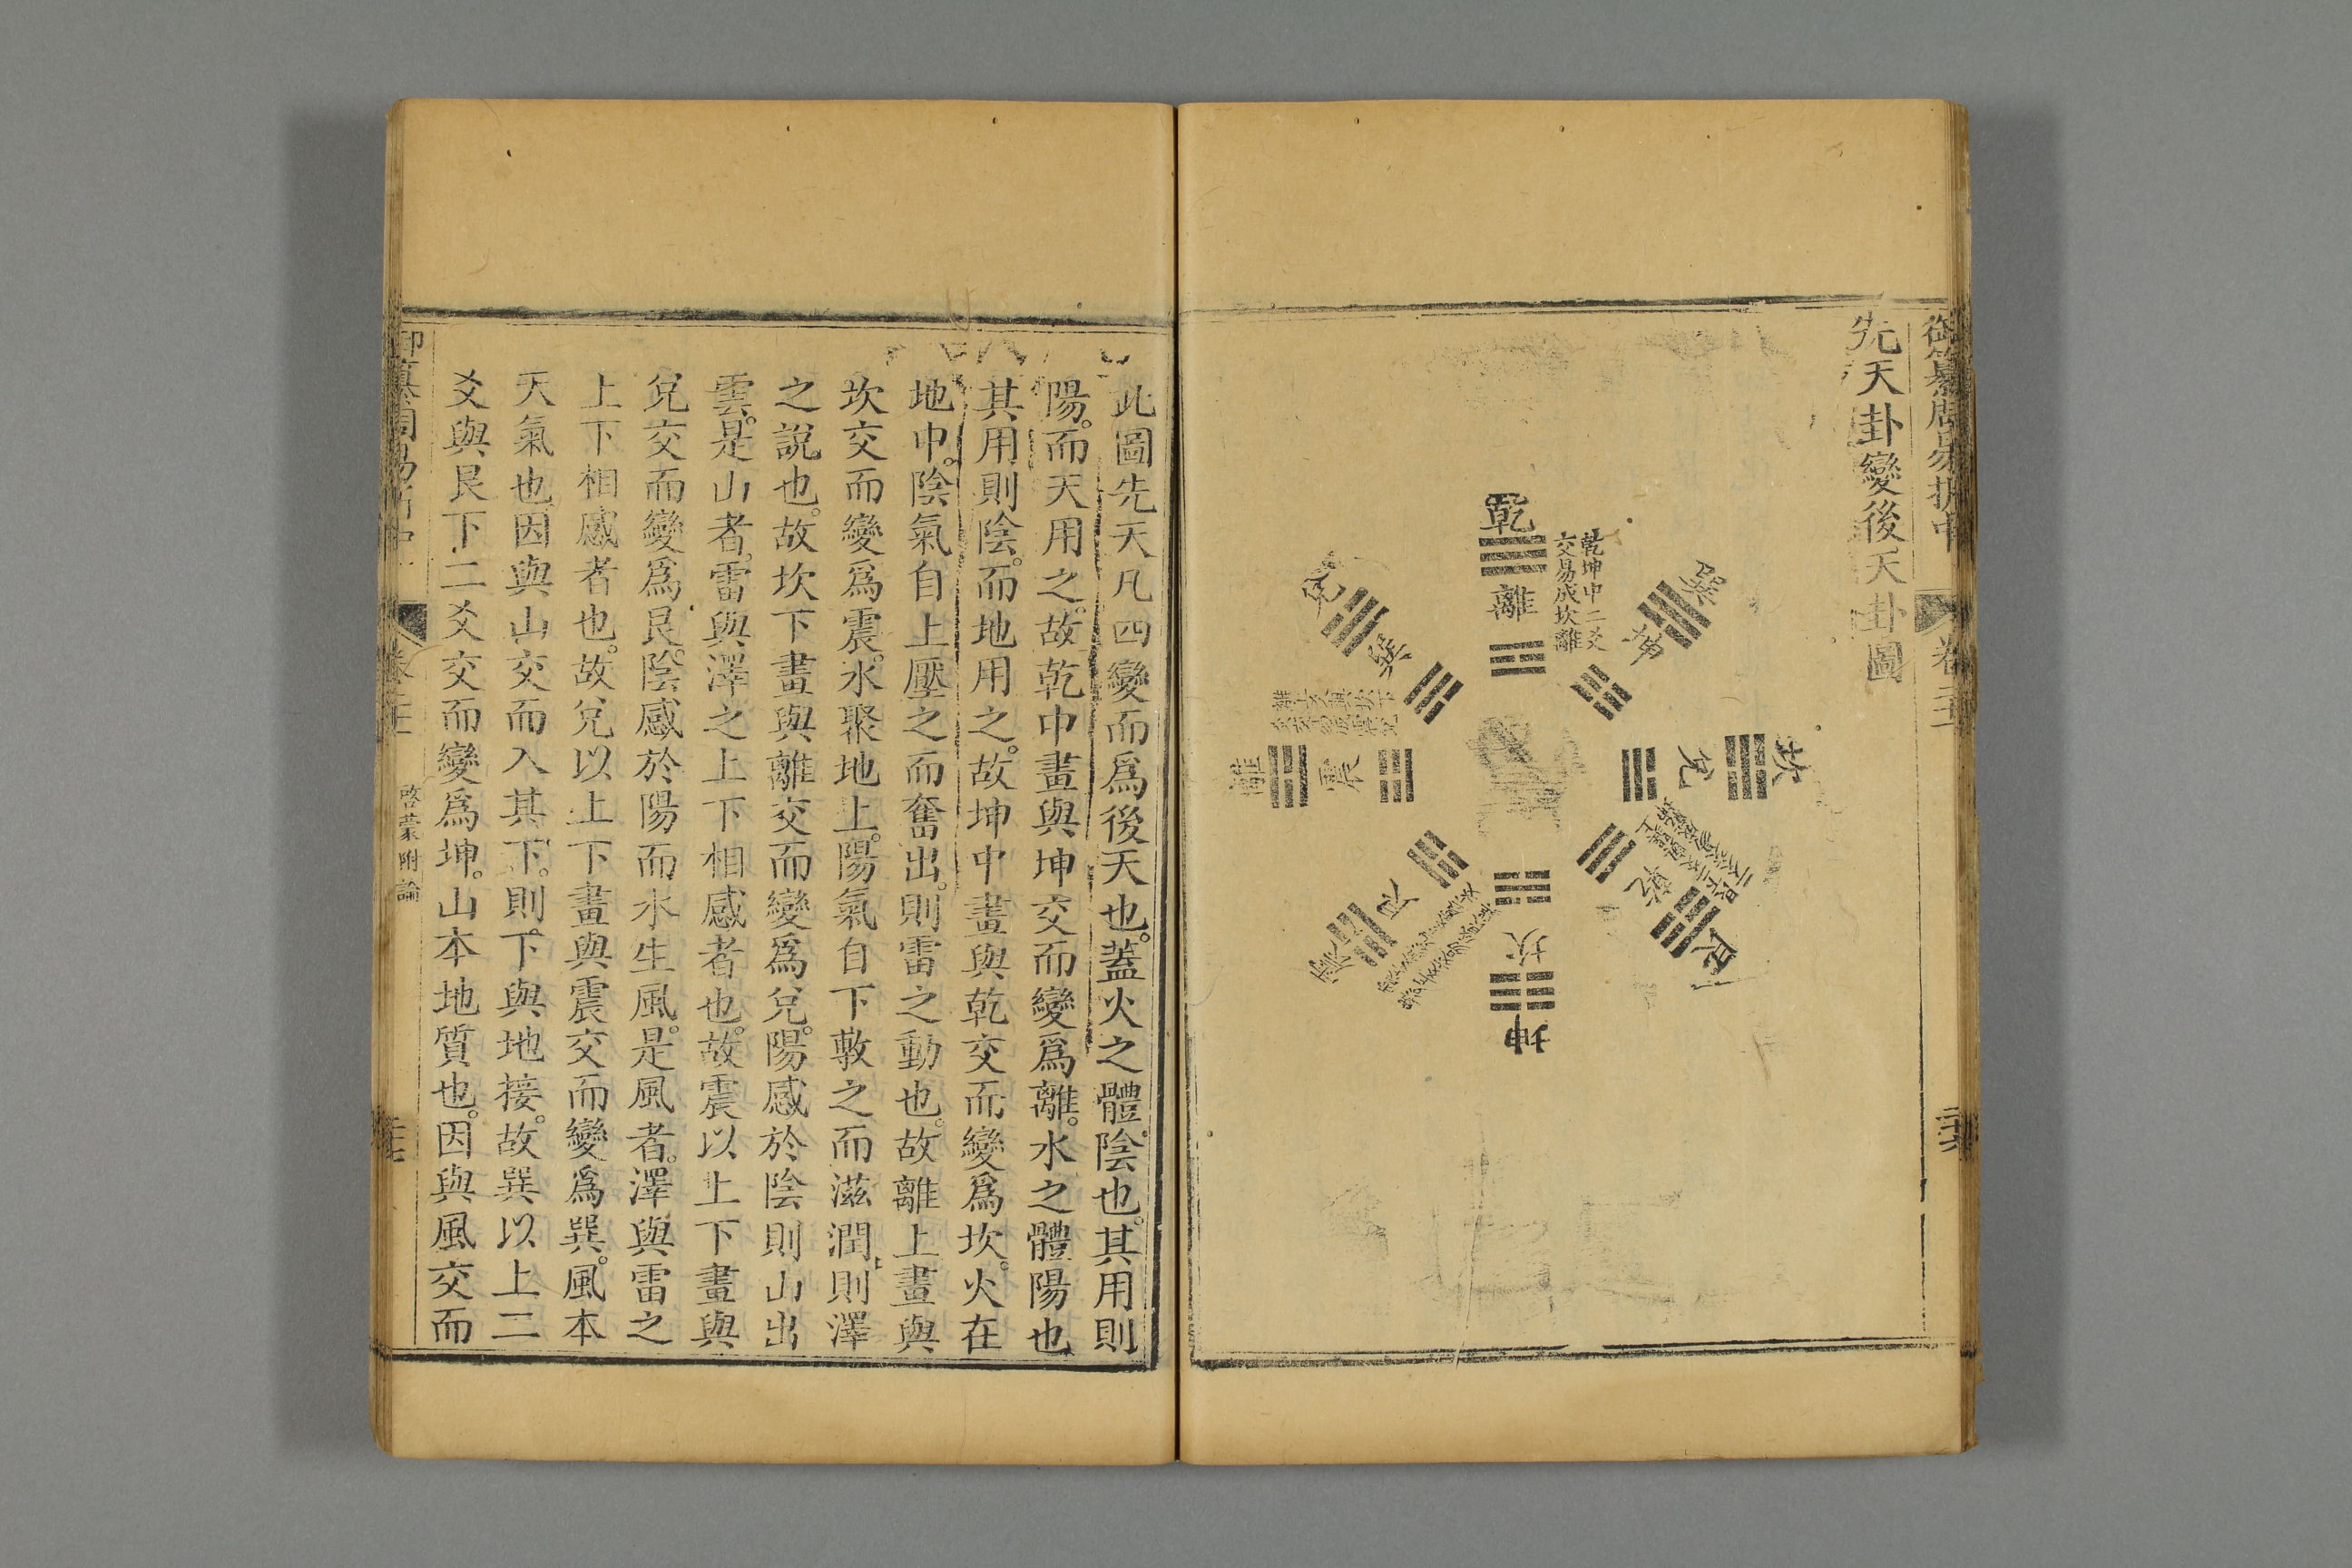 御纂周易折中
卷二十一
先天卦變後天卦圖
乾
離
乾坤中二爻
交易成坎離
巽
坤
坎
兌
艮
乾
坤
坎
震
艮
離
震
兌
巽
此圖先天凡四變而爲後天也。蓋火之體。陰也。其用則
陽。而天用之。故乾中畫與坤交而變爲離。水之體陽也
其用則陰。而地用之。故坤中畫與乾交而變爲坎。火在
地中。陰氣自上壓之而奮出。則雷之動也。故離上畫與
坎交而變爲震。水聚地上。陽氣自下敷之而滋潤。則澤
之說也。故坎下畫與離交而變爲兌。陽感於陰則山出
雲。是山者。雷與澤之上下相感者也。故震以上下畫與
兌交而變爲艮。陰感於陽而水生風。是風者。澤與雷之
上下相感者也。故兌以上下畫與震交而變爲巽。風本
天氣也。因與山交而入其下。則下與地接。故巽以上二
爻與艮下二爻交而變爲坤。山本地質也。因與風交而
御纂周易折中
啓蒙附論